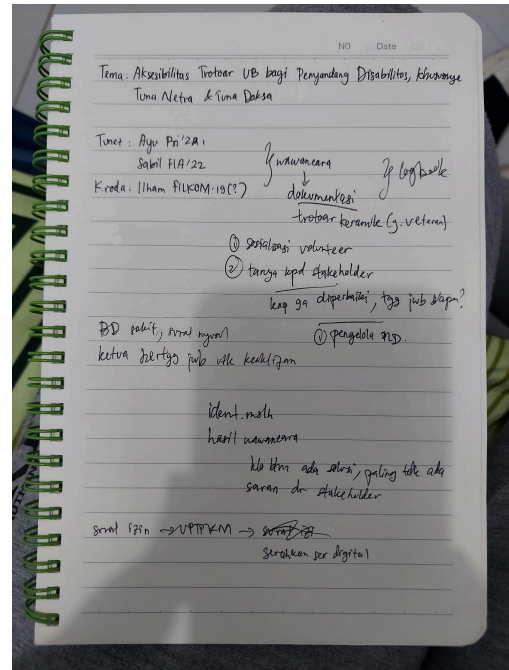 NO Date
Tema: Aksesibilitas Trotoar UB bagi Penyandang Disabilitas, khususnya
Tuna Netra & Tuna Daksa
Tunet: Ayu
Sabil FIA '22
K.roda: Ilham FILKOM '19 (?)
} wawancara
} logbook
↓
dokumentasi
trotoar keramik (j. veteran)
① sosialisasi volunteer
② tanya kpd stakeholder
ga diperbaiki, tgg jwb siapa?
BD sakit, surat
① pengelola
ketua bertgg jwb utk keaktifan
ident. mslh
hasil wawancara
klo blm ada solusi, paling tdk ada
saran dr stakeholder
surat izin → → 
serahkan scr digital